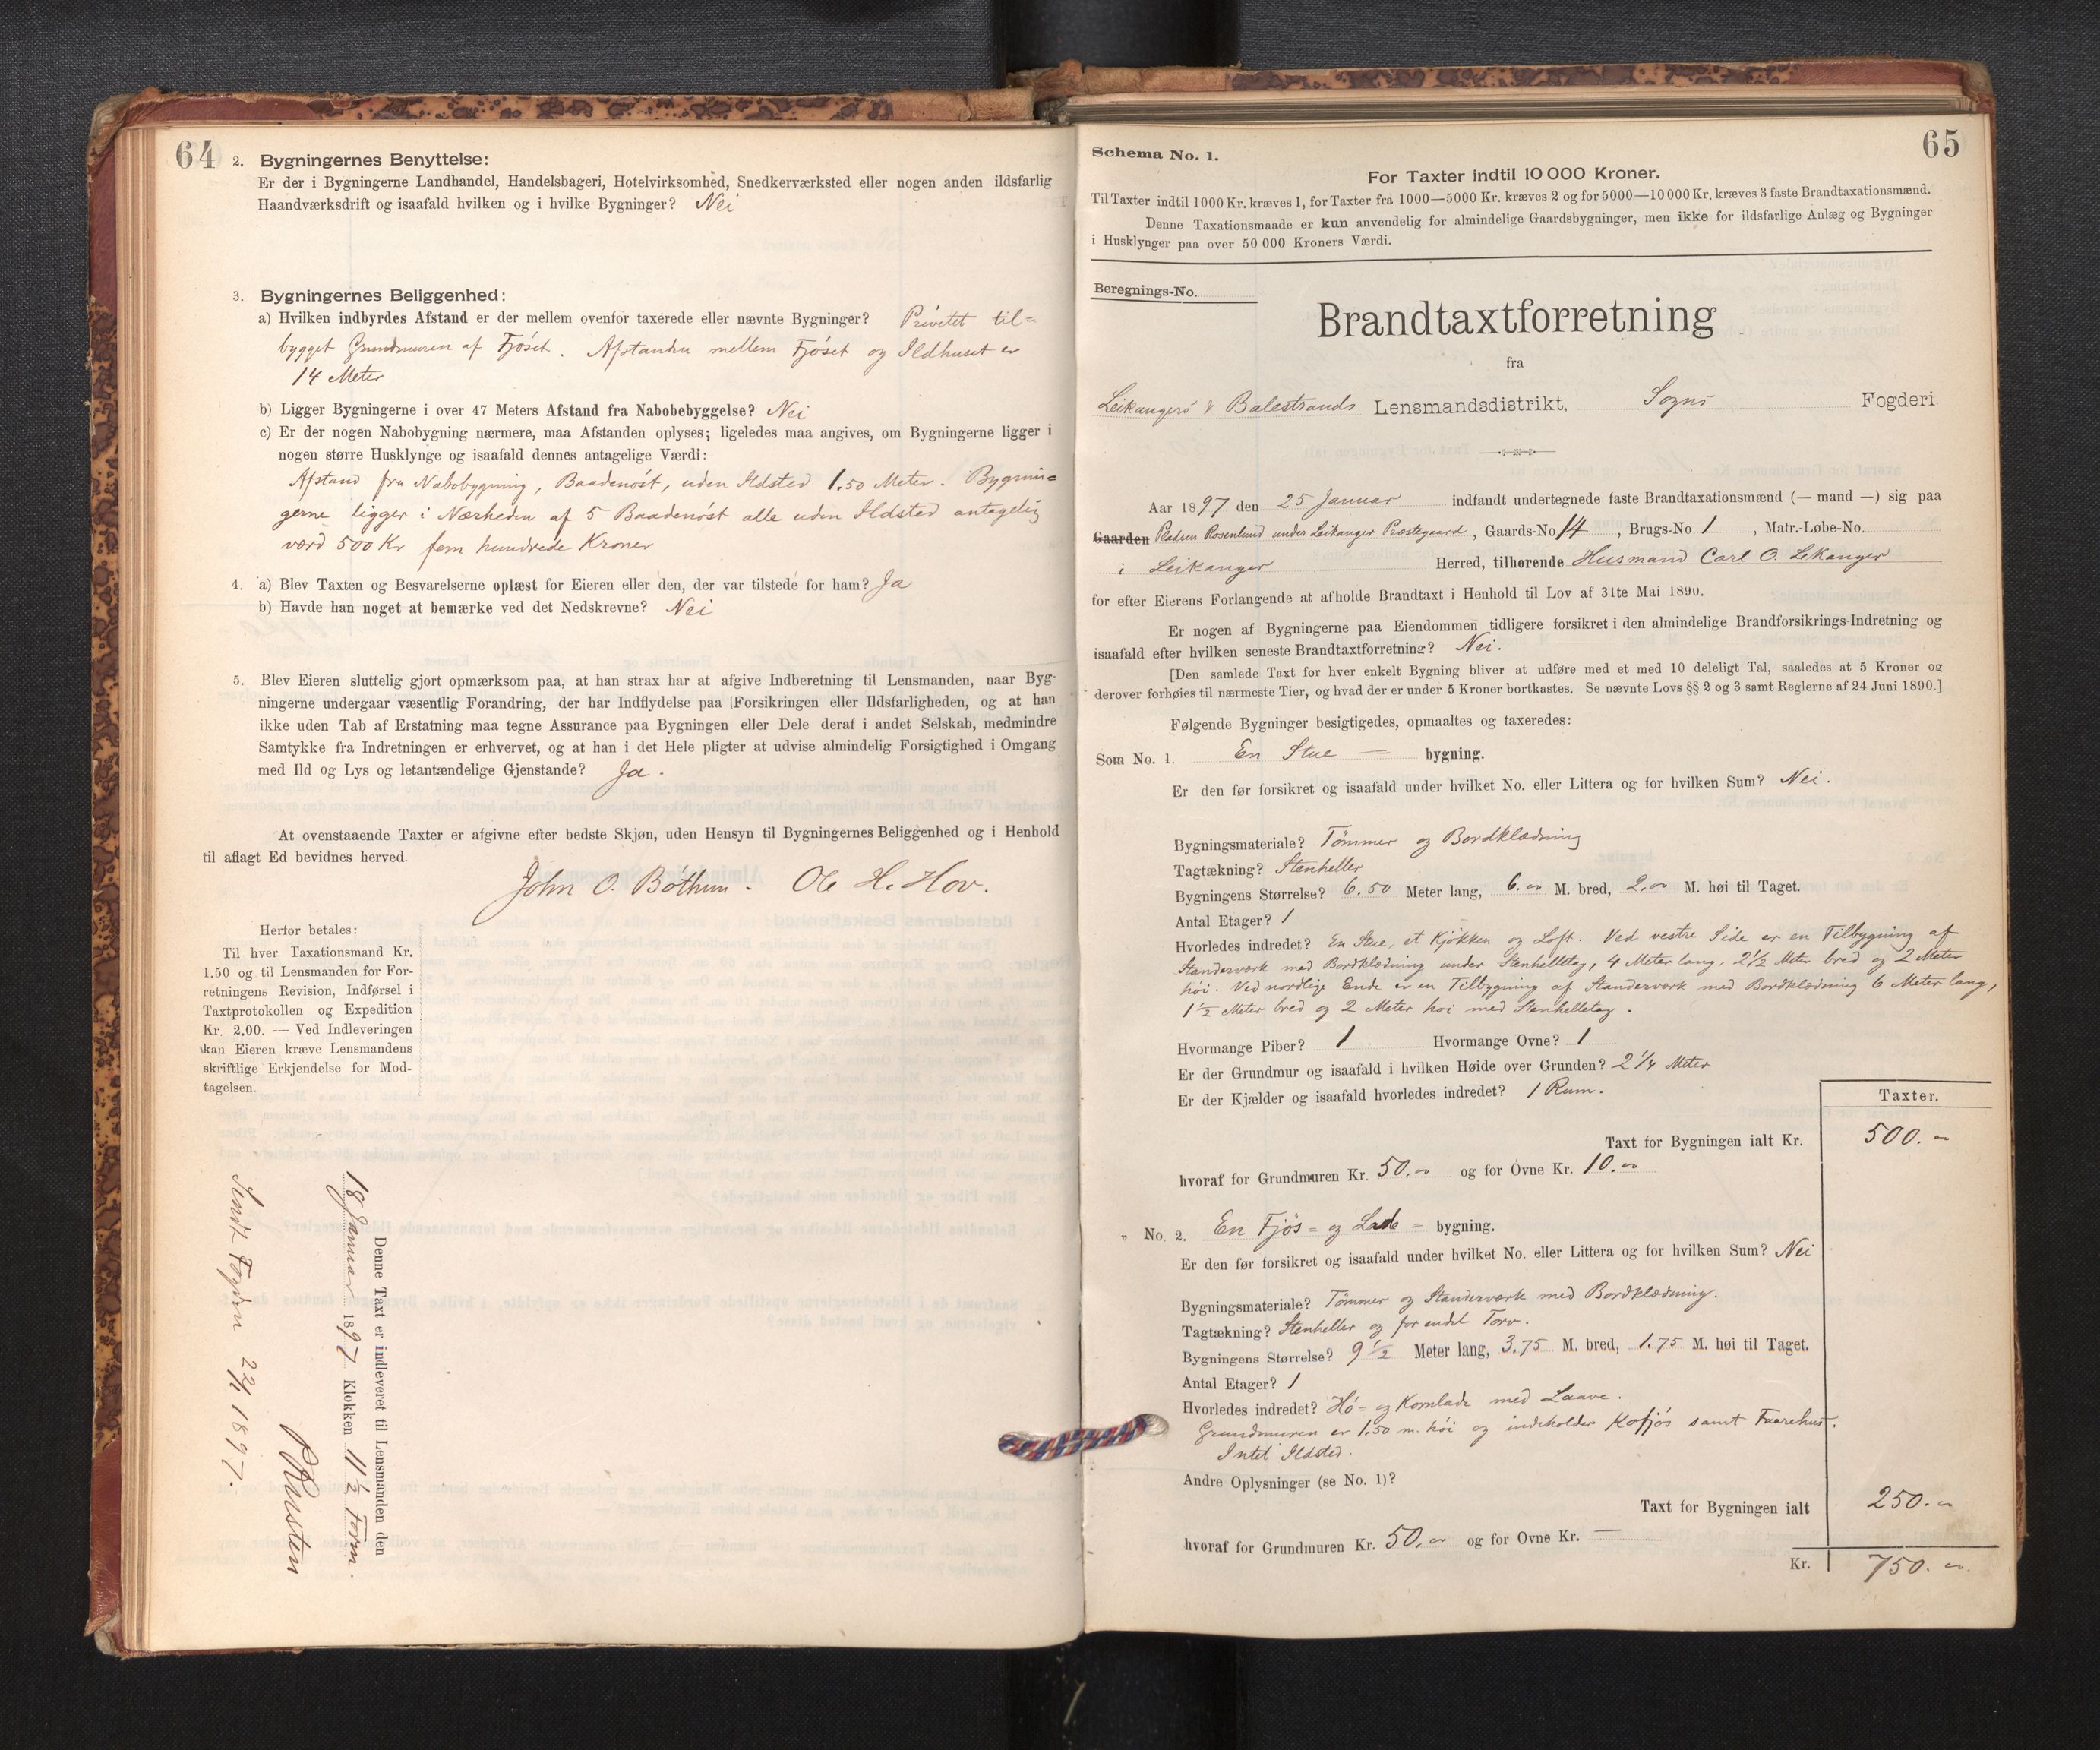 64
2. Bygningernes Benyttelse:
Er der i Bygningerne Landhandel, Handelsbageri, Hotelvirksomhed, Snedkerværksted eller nogen anden ildsfarlig
Haandværksdrift og isaafald hvilken og i hvilke Bygninger? Nei
3. Bygningernes Beliggenhed:
a) Hvilken indbyrdes Afstand er der mellem ovenfor taxerede eller nævnte Bygninger? Privetet til=
bygget Grundmuren af Fjöset. Afstanden mellem Fjöset og Ildhuset er
14 Meter
b) Ligger Bygningerne i over 47 Meters Afstand fra Nabobebyggelse? Nei
c) Er der nogen Nabobygning nærmere, maa Afstanden oplyses; ligeledes maa angives, om Bygningerne ligger i
nogen større Husklynge og isaafald dennes antagelige Værdi:
Afstand fra Nabobygning, Baadenöst, uden Ildsted 1.50 Meter. Bygnin=
gerne ligger i Nærheden af 5 Baadenöst alle uden Ildsted antagelig
værd 500 Kr fem hundrede Kroner
4. a) Blev Taxten og Besvarelserne oplæst for Eieren eller den, der var tilstede for ham? Ja
b) Havde han noget at bemærke ved det Nedskrevne? Nei
5. Blev Eieren sluttelig gjort opmærksom paa, at han strax har at afgive Indberetning til Lensmanden, naar Byg-
ningerne undergaar væsentlig Forandring, der har Indflydelse paa Forsikringen eller Ildsfarligheden, og at han
ikke uden Tab af Erstatning maa tegne Assurance paa Bygningen eller Dele deraf i andet Selskab, medmindre
Samtykke fra Indretningen er erhvervet, og at han i det Hele pligter at udvise almindelig Forsigtighed i Omgang
med Ild og Lys og letantændelige Gjenstande? Ja.
At ovenstaaende Taxter er afgivne efter bedste Skjøn, uden Hensyn til Bygningernes Beliggenhed og i Henhold
til aflagt Ed bevidnes herved.
John O. Bothun. Ole H. Hov.
Herfor betales:
Til hver Taxationsmand Kr.
1.50 og til Lensmanden for For-
retningens Revision, Indførsel i
Taxtprotokollen og Expedition
Kr. 2.00. — Ved Indleveringen
kan Eieren kræve Lensmandens
skriftlige Erkjendelse for Mod-
tagelsen.
Denne Taxt er indleveret til Lensmanden den
18 Januar 1897 Klokken 11 ½ Form.
Sendt Fogden 22/1 1897.
65
Schema No. 1.
For Taxter indtil 10 000 Kroner.
Til Taxter indtil 1000 Kr. kræves 1, for Taxter fra 1000—5000 Kr. kræves 2 og for 5000—10 000 Kr. kræves 3 faste Brandtaxationsmænd.
Denne Taxationsmaade er kun anvendelig for almindelige Gaardsbygninger, men ikke for ildsfarlige Anlæg og Bygninger
i Husklynger paa over 50 000 Kroners Værdi.
Beregnings-No.
Brandtaxtforretning
fra
Leikangers & Balestrands Lensmandsdistrikt, Sogns Fogderi
Aar 1897 den 25 Januar indfandt undertegnede faste Brandtaxationsmænd (— mand —) sig paa
Gaarden Pladsen Rosenlund under Leikanger Præstegaard, Gaards-No 14, Brugs-No 1, Matr.-Løbe-No.
i Leikanger Herred, tilhørende Husmand Carl O. Lekanger
for efter Eierens Forlangende at afholde Brandtaxt i Henhold til Lov af 31te Mai 1890.
Er nogen af Bygningerne paa Eiendommen tidligere forsikret i den almindelige Brandforsikrings-Indretning og
isaafald efter hvilken seneste Brandtaxtforretning? Nei.
[Den samlede Taxt for hver enkelt Bygning bliver at udføre med et med 10 deleligt Tal, saaledes at 5 Kroner og
derover forhøies til nærmeste Tier, og hvad der er under 5 Kroner bortkastes. Se nævnte Lovs §§ 2 og 3 samt Reglerne af 24 Juni 1890.]
Følgende Bygninger besigtigedes, opmaaltes og taxeredes:
Som No. 1. En Stue = bygning.
Er den før forsikret og isaafald under hvilket No. eller Littera og for hvilken Sum? Nei.
Bygningsmateriale? Tömmer og Bordklædning
Tagtækning? Stenheller
Bygningens Størrelse? 6.50 Meter lang, 6.00 M. bred, 2.00 M. høi til Taget.
Antal Etager? 1
Hvorledes indredet? En Stue, et Kjökken og Loft. Ved vestre Side er en Tilbygning af
Standerværk med Bordklædning under Stenhelletag, 4 Meter lang, 2 ½ Meter bred og 2 Meter
höi. Ved nordlige Ende er en Tilbygning af Standerværk med Bordklædning 6 Meter lang,
1 ½ Meter bred og 2 Meter høi med Stenhelletag.
Hvormange Piber? 1 Hvormange Ovne? 1
Er der Grundmur og isaafald i hvilken Høide over Grunden? 2 ¼ Meter
Er der Kjælder og isaafald hvorledes indredet? 1 Rum.
Taxter.
Taxt for Bygningen ialt Kr. 500.00
hvoraf for Grundmuren Kr. 50.00 og for Ovne Kr. 10.00
" No. 2. En Fjös= og Lade= bygning.
Er den før forsikret og isaafald under hvilket No. eller Littera og for hvilken Sum? Nei
Bygningsmateriale? Tömmer og Standerværk med Bordklædning.
Tagtækning? Stenheller og for endel Torv.
Bygningens Størrelse? 9 ½ Meter lang, 3.75 M. bred, 1.75 M. høi til Taget.
Antal Etager? 1
Hvorledes indredet? Hö= og Kornlade med Laave.
Grundmuren er 1.50 m. höi og indeholder Kofjös samt Faarehus.
Intet Ildsted.
Andre Oplysninger (se No. 1)?
Taxt for Bygningen ialt 250.00
hvoraf for Grundmuren Kr. 50.00 og for Ovne Kr. —
Kr. 750.00